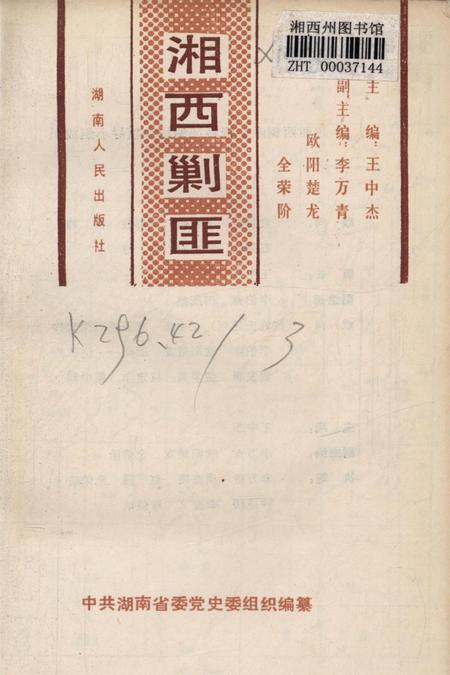 湘西州图书馆
ZHT 00037144
主 编：王中杰
副主编：李万青
欧阳楚龙
全荣阶
湘西剿匪
湖南人民出版社
K296.42/3
中共湖南省委党史委组织编纂